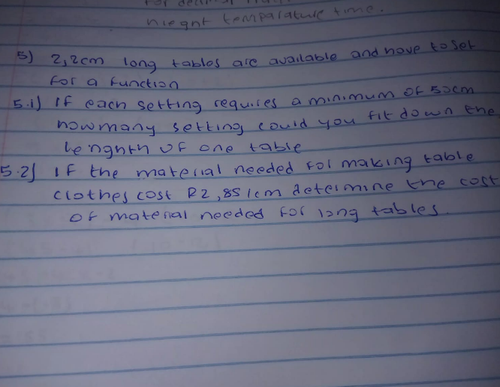 hieght temparature time.
5) 2,2cm long tables are available and have to set
for a function
5.1) If each setting requires a minimum of 50cm
how many setting could you fit down the
lenghth of one table
5.2) If the material needed for making table
clothes cost R2,85/cm determine the cost
of material needed for long tables.